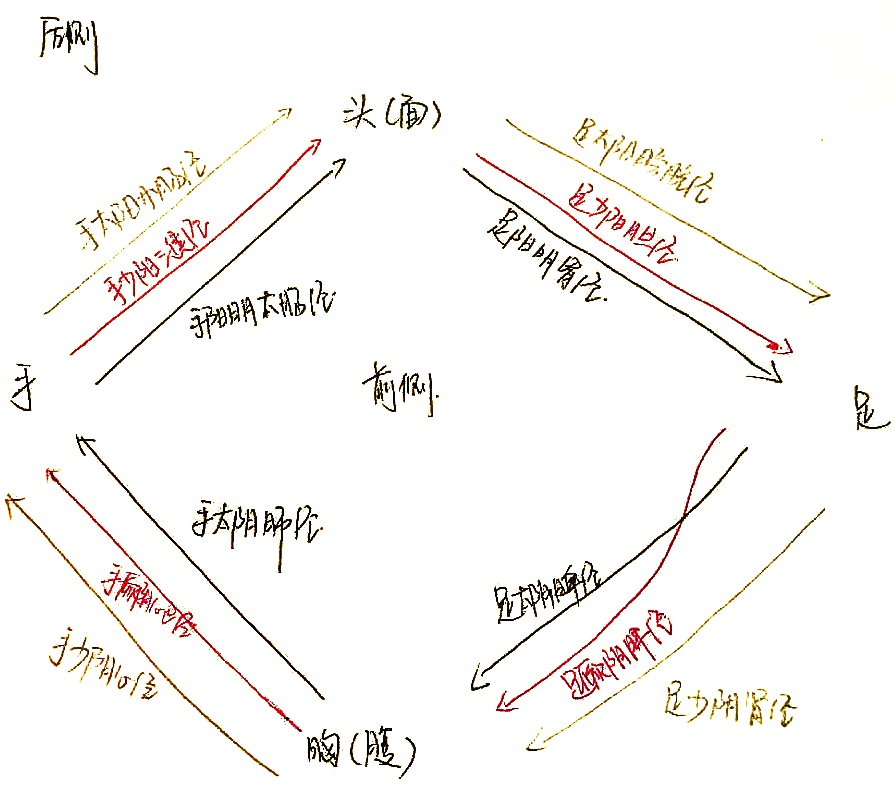 后侧
头(面)
手太阳小肠经
手少阳三焦经
手阳明大肠经
足太阳膀胱经
足少阳胆经
足阳明胃经
手
前侧
足
手太阴肺经
手厥阴心包经
手少阴心经
足太阴脾经
足厥阴肝经
足少阴肾经
胸(腹)